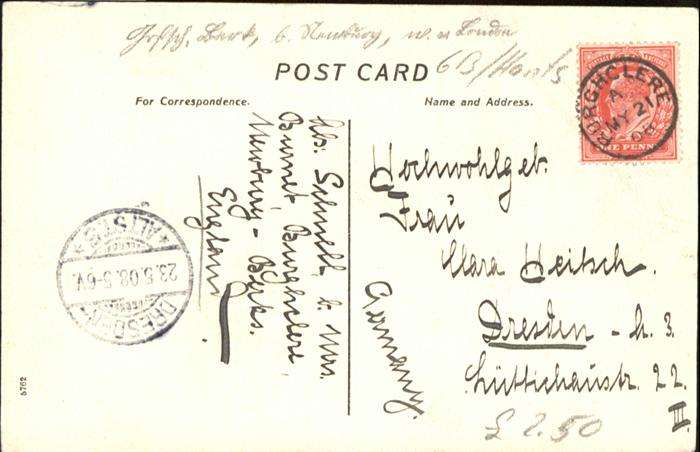 Grfsch. Berk, b. Newbury, w. v. London
GB/Hants
POST CARD
For Correspondence.
Name and Address.
BURGHCLERE
A
MY 21
08
ONE PENNY
Abs: Schmidt, b. Mrs.
Burnet, Burghclere,
Newbury - Berks.
England
Hochwohlgeb.
Frau
Clara Heitsch.
Dresden - A. 3.
Lüttichaustr. 22
II.
Germany.
DRESDEN
ALTST.
23.5.08. 5-6V.
£ 2.50
5762